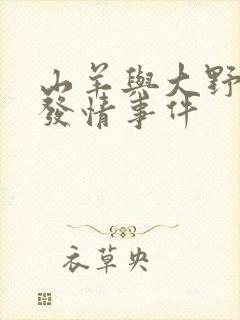 山羊與大野
發情事件
衣草央